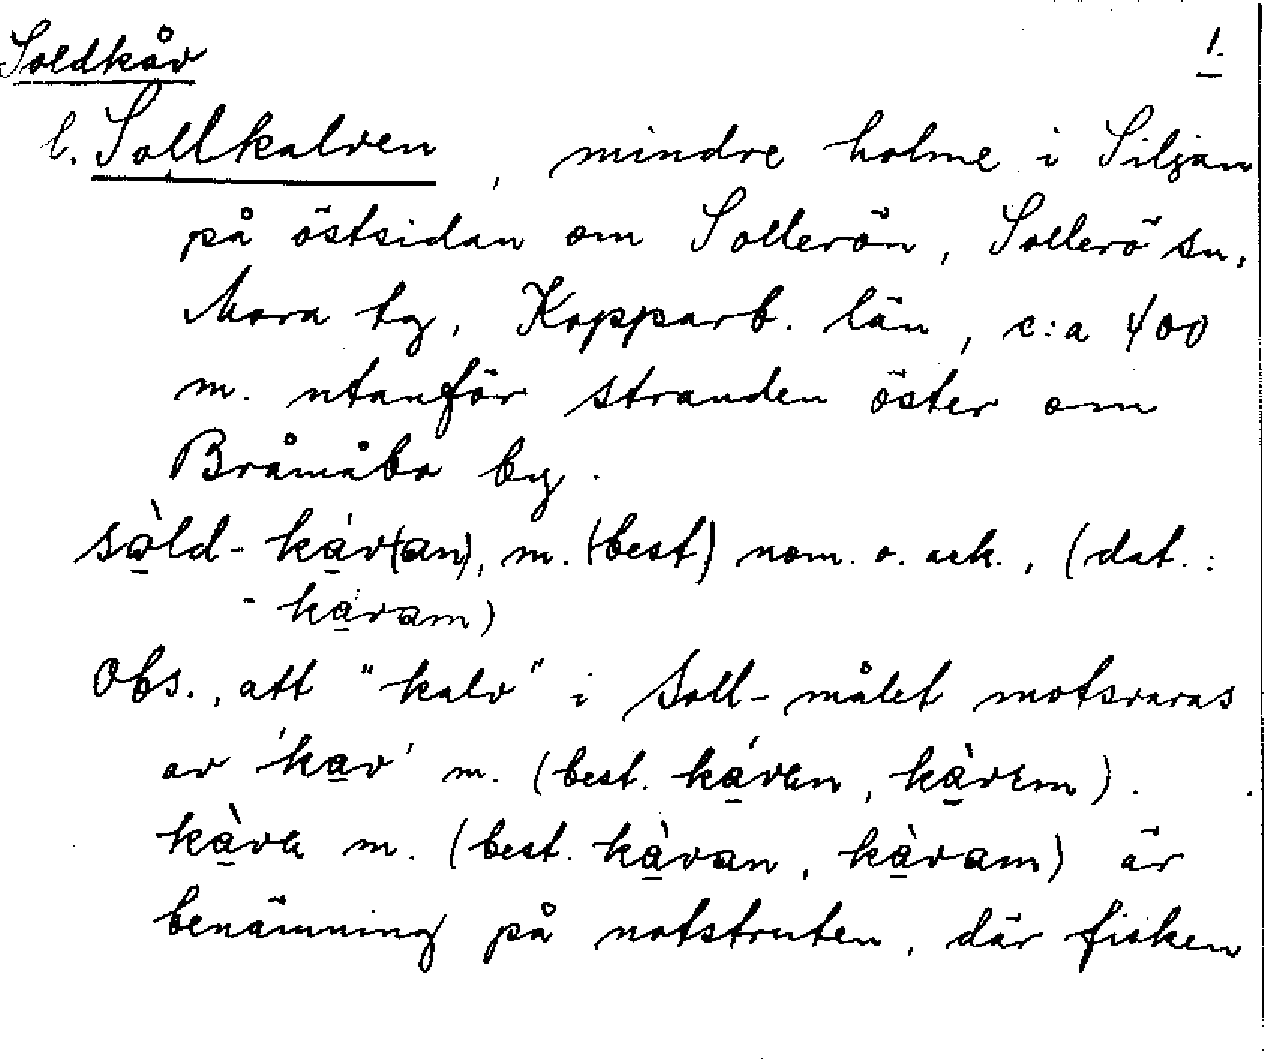 Soldkåv
1.
l. Sollkalven, mindre holme i Siljan
på östsidan om Sollerön, Sollerö sn,
Mora tg, Kopparb. län, c:a 400
m. utanför stranden öster om
Bråmåbo by.
sàld-káv(an), m. (best) nom. o. ack., (dat.:
-kávam)
Obs., att "kalv" i Soll-målet motsvaras
av 'kav' m. (best. kávɐn, kàvɐm).
kàvɐ m. (best. kàvan, kàvam) är
benämning på notstruten, där fisken